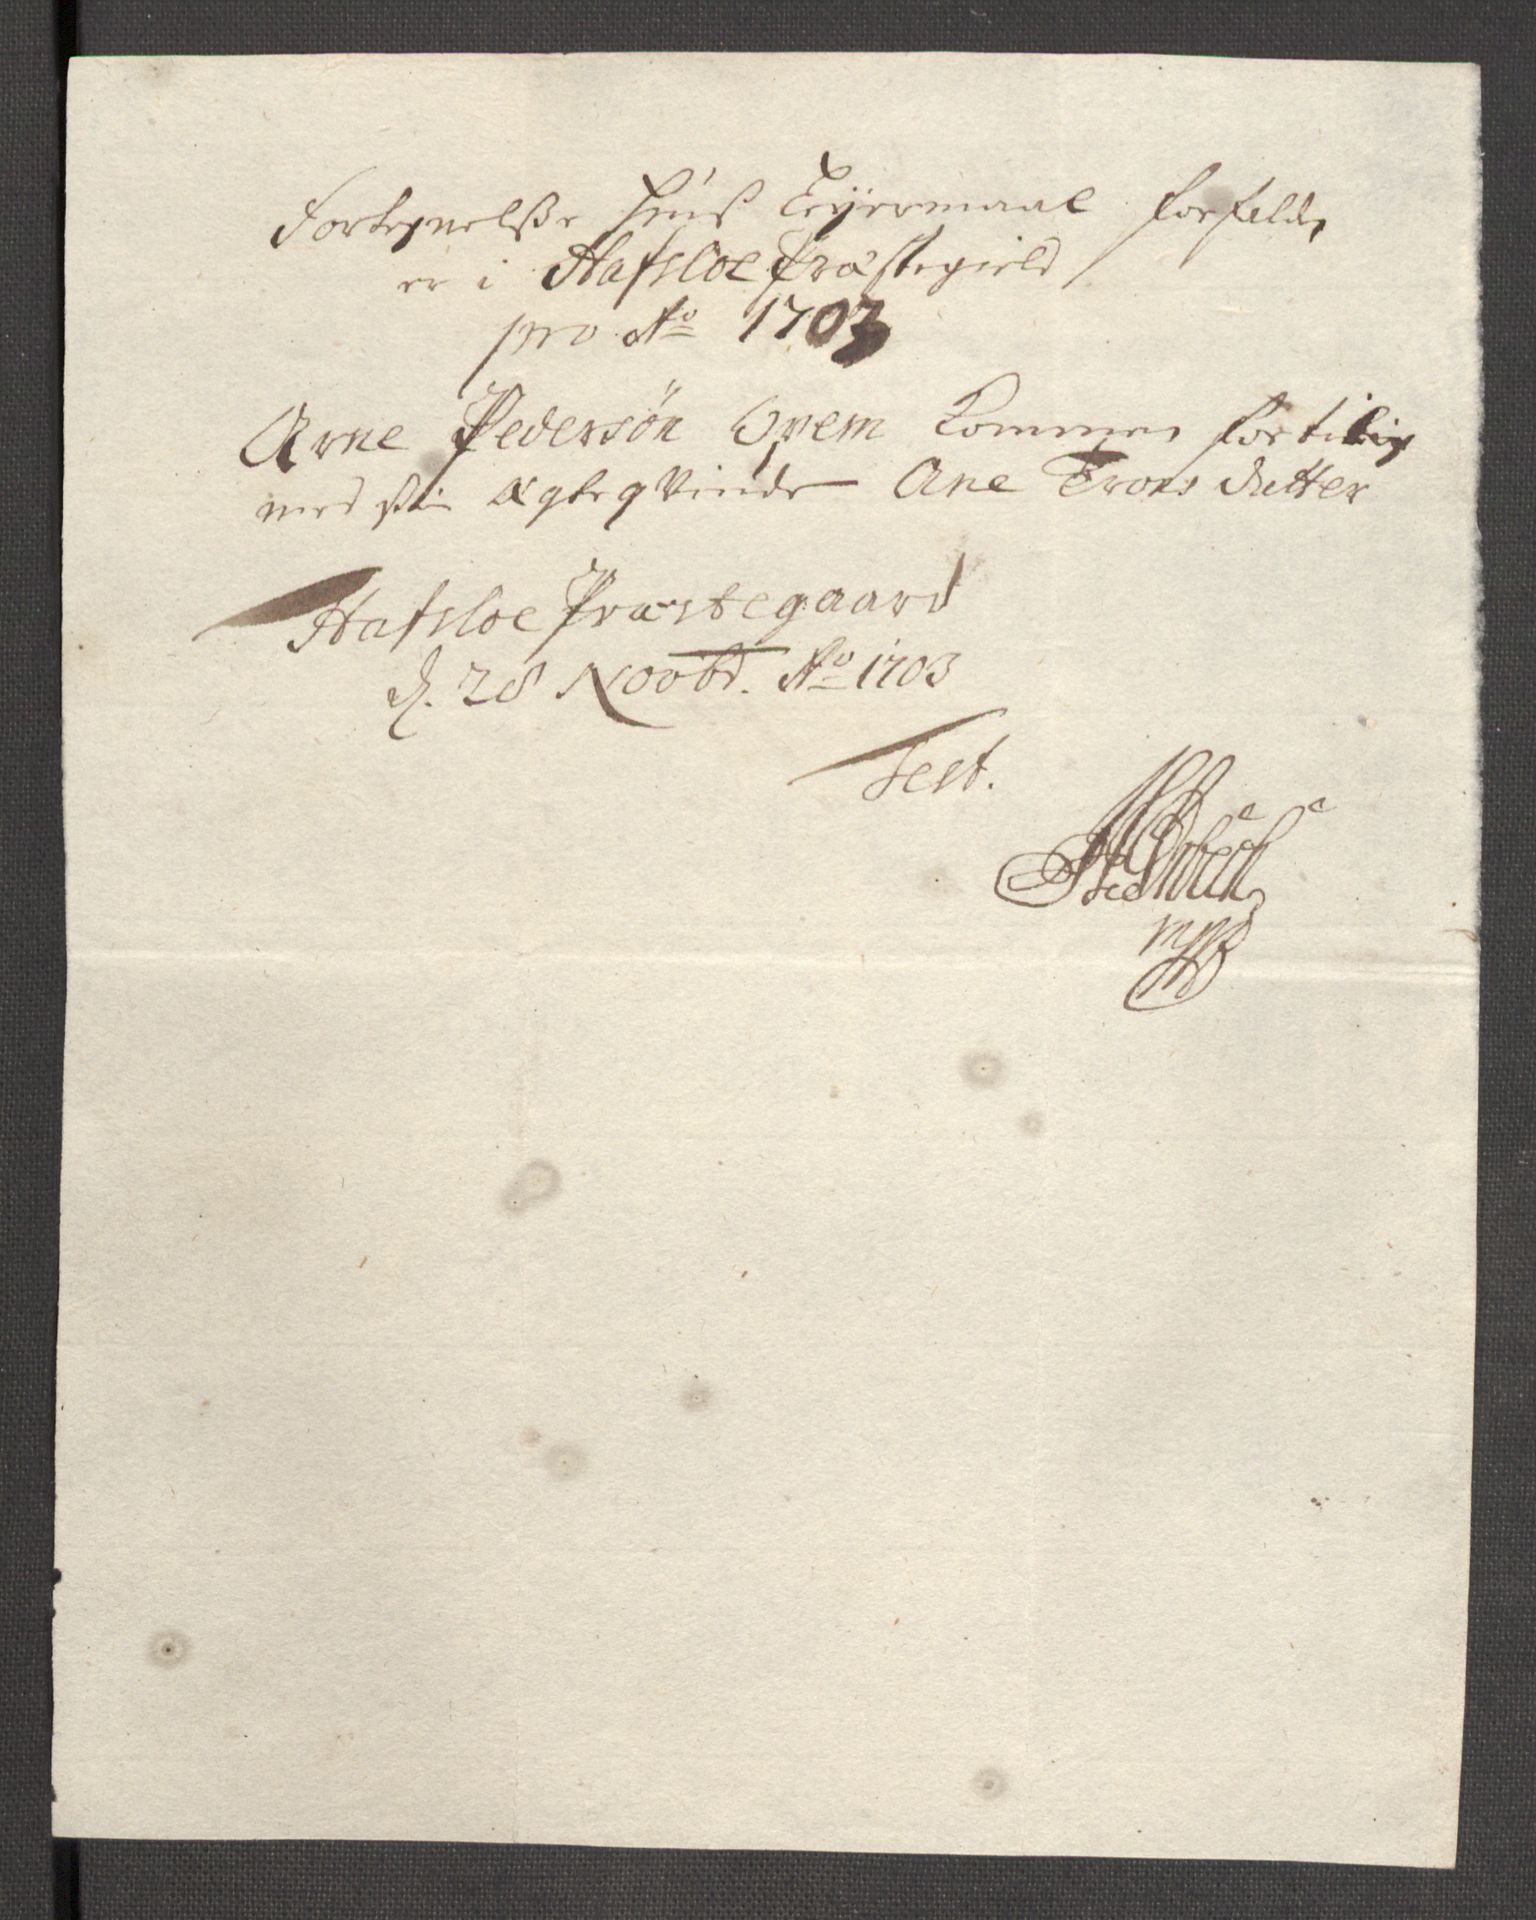 Fortegnelße huis Leyermaal forfalden
er i Hafsloe Præstegield
pro Ao 1703
Arne Pedersøn Qvem kommen for tilig
med sin ægteqvinde Ane Trons datter
Hafsloe Præstegaard
d. 28 Novbr. Ao 1703
Test.
mpp